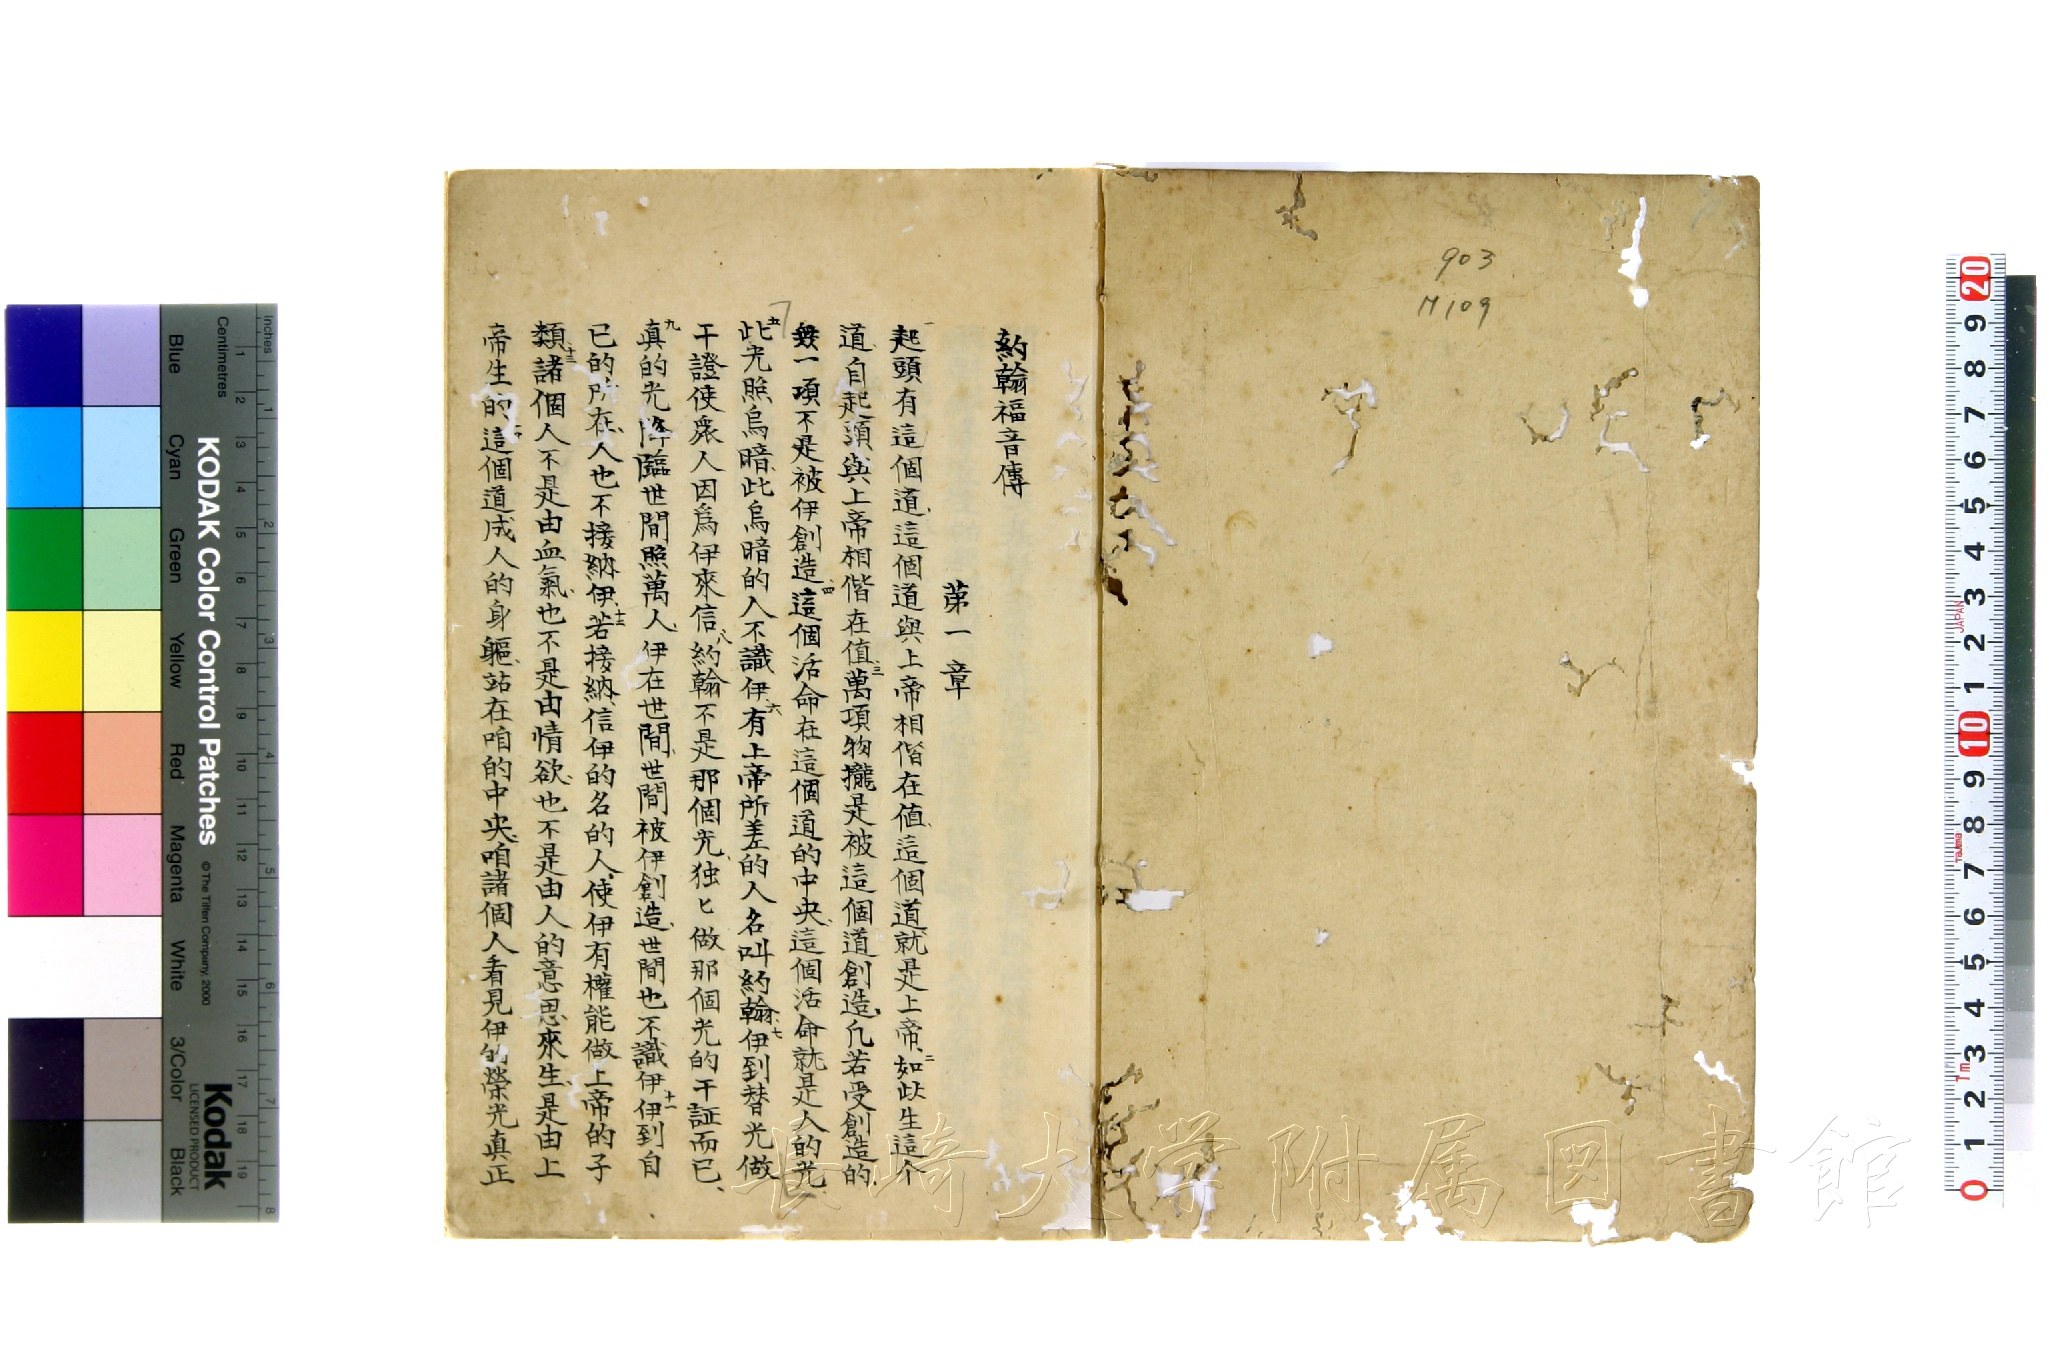 903
M109
約翰福音傳
第一章
一起頭有這個道、這個道與上帝相偕在値、這個道就是上帝、二如此生這个
道、自起頭與上帝相偕在值、三萬項物攏是被這個道創造、凢若受創造的、
無一項不是被伊創造、四這個活命在這個道的中央、這個活命就是人的光
五此光照烏暗、此烏暗的人不識伊、六有上帝所差的人名叫約翰、七伊到替光做
干證使衆人因爲伊來信、八約翰不是那個光、独匕做那個光的干証而已、
九真的光降臨世間照萬人、伊在世間、世間被伊創造、世間也不識伊、十一伊到自
已的所在、人也不接納伊、十二若接納、信伊的名的人、使伊有權能做上帝的子
類、十三諸個人不是由血氣、也不是由情欲、也不是由人的意思來生、是由上
帝生的、這個道成人的身軀、站在咱的中央、咱諸個人看見伊的榮光真正
KODAK Color Control Patches
© The Tiffen Company, 2000
Kodak
LICENSED PRODUCT
Inches
Centimetres
Blue
Cyan
Green
Yellow
Red
Magenta
White
3/Color
Black
長崎大学附属図書館